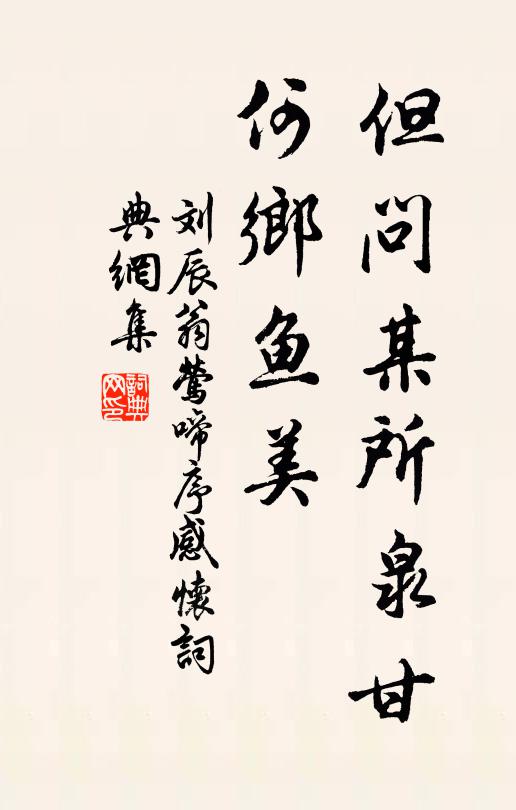 但問某所泉甘
何鄉鱼美
刘辰翁莺啼序感懷詞
典網集
詞典
网印